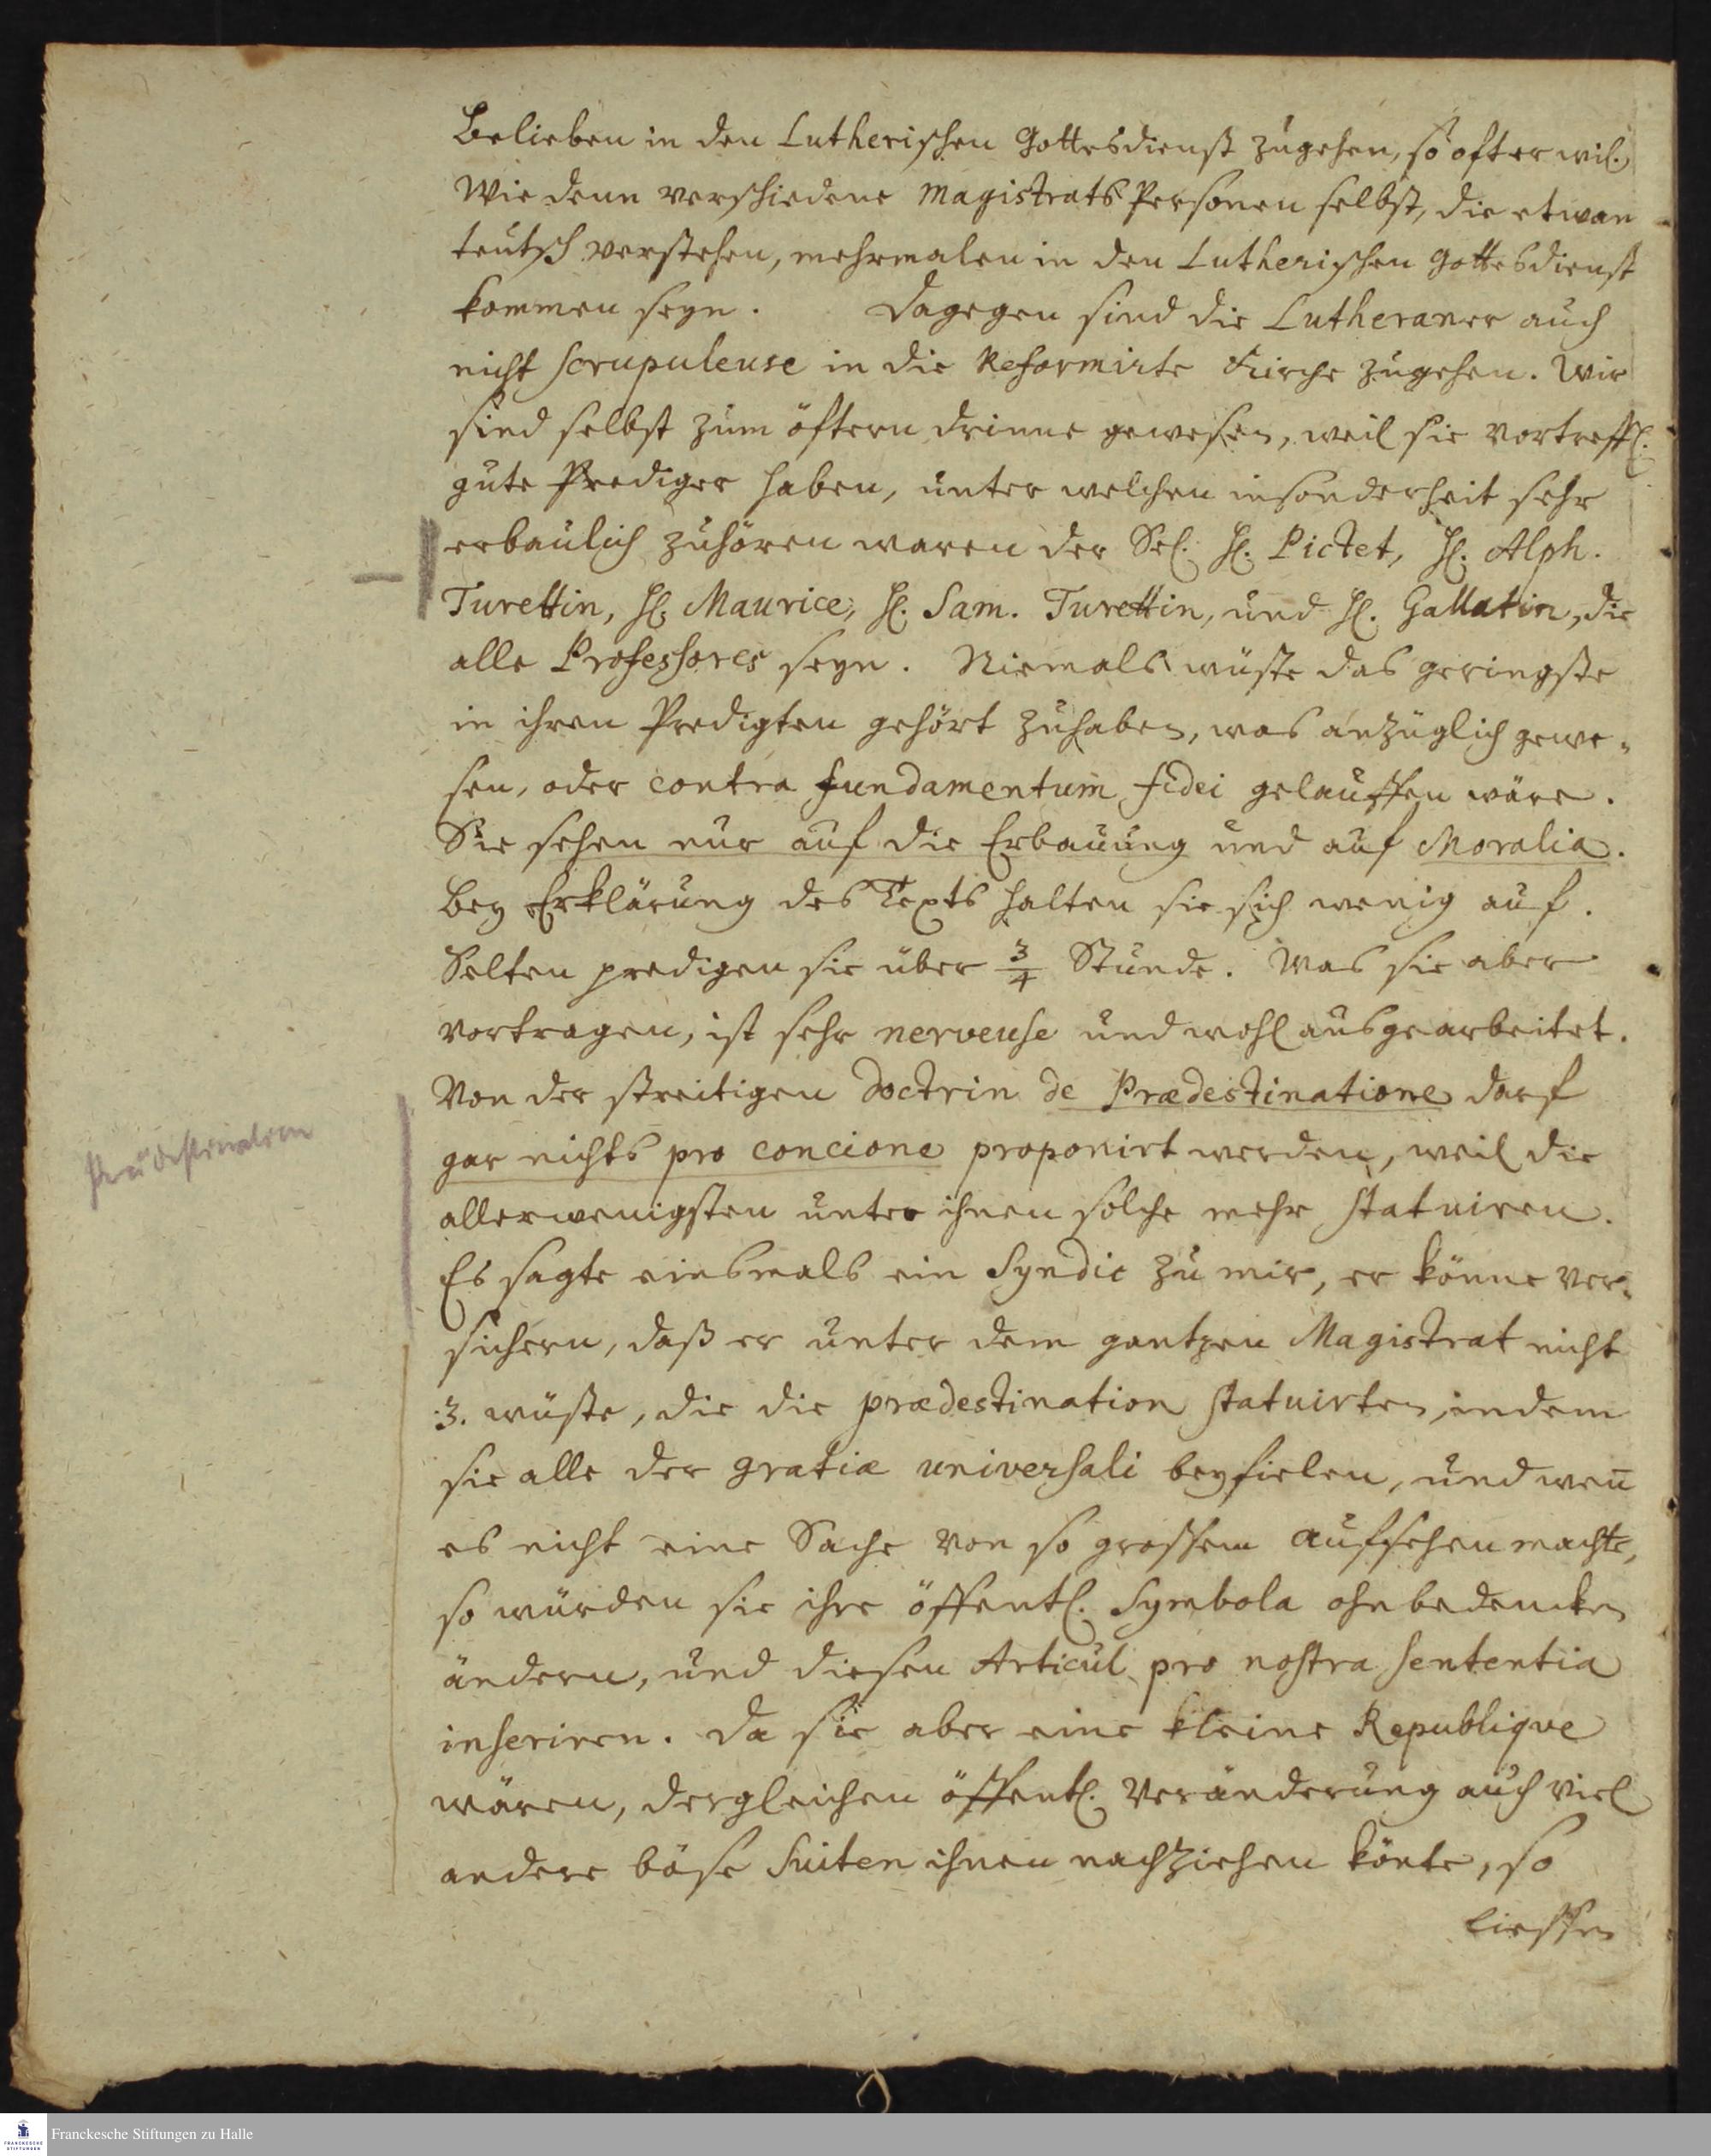 Belieben in den Lutherischen Gottesdienst zugehen, so oft er wil.
Wie denn verschiedene Magistrats Personen selbst, die etwan
teutsch verstehen, mehrmalen in den Lutherischen Gottesdienst
kommen seyn. Dagegen sind die Lutheraner auch
nicht scrupuleuse in die Reformirte Kirche zugehen. Wir
sind selbst zum öftern drinne gewesen, weil sie vortreffl.
gute Prediger haben, unter welchen insonderheit sehr
erbaulich zuhören waren der Sel. H. Pictet, H. Alph.
Turettin, H. Maurice, H. Sam. Turettin, und H. Gallatin, die
alle Professores seyn. Niemals wüste das geringste
in ihren Predigten gehört zuhaben, was anzüglich gewe-
sen, oder contra fundamentum fidei gelauffen wäre.
Sie sehen nur auf die Erbauung und auf Moralia.
Bey Erklärung des Texts halten sie sich wenig auf.
Selten predigen sie über 3/4 Stunde. Was sie aber
vortragen, ist sehr nerveuse und wohl ausgearbeitet.
Von der streitigen Doctrin de Prædestinatione darf
gar nichts pro concione proponirt werden, weil die
Prädestination
allerwenigsten unter ihnen solche mehr statuiren.
Es sagte einsmals ein Syndic zu mir, er könne ver-
sichern, daß er unter dem gantzen Magistrat nicht
3. wüste, die die prædestination statuirten, indem
sie alle der gratiæ universali beyfielen, und weñ
es nicht eine Sache von so grossem aufsehen machte,
so würden sie ihre öffentl. Symbola ohnbedencken
ändern, und diesen Articul pro nostra sententia
inseriren. Da sie aber eine kleine Republique
wären, dergleichen öffentl. Veränderung auch viel
andere böse Suiten ihnen nachziehen könte, so
liessen
Franckesche Stiftungen zu Halle